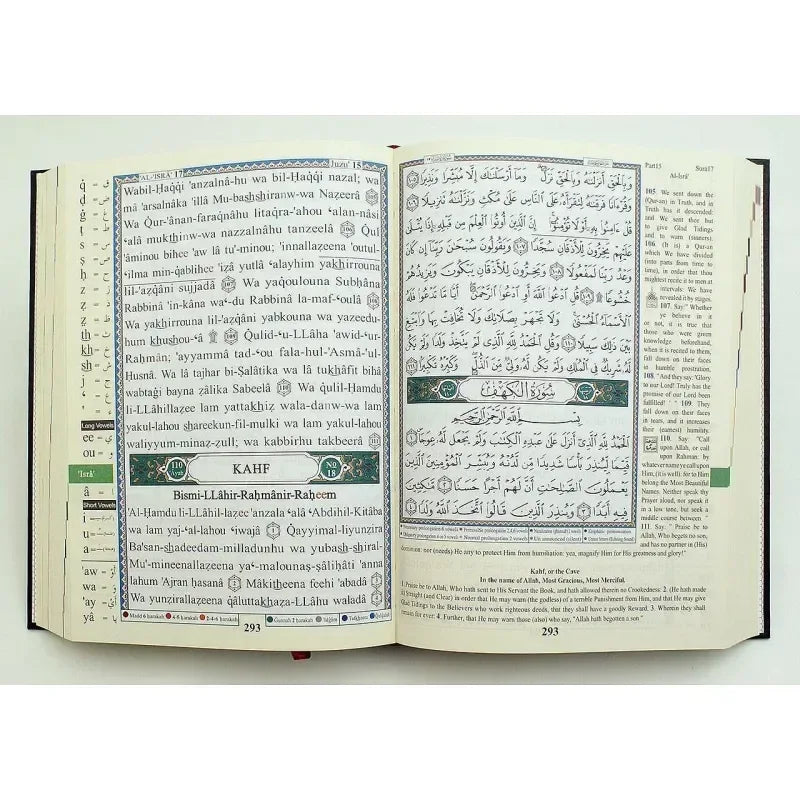 'AL-'ISRÂ' 17
Juzu' 15
Wabil-Ḥaqqi 'anzalnâ-hu wa bil-Ḥaqqi nazal; wa
mâ 'arsalnâka 'illâ Mu-bashshiranw-wa Nazeerâ
Wa Qur-'ânan-faraqnâhu litaqra-'ahou ‘alan-nâsi
‘alâ mukthinw-wa nazzalnâhu tanzeelâ 106 Qul
'âminou bihee 'aw lâ tu'minou; 'innallazeena 'outul-
‘ilma min-qablihee 'izâ yutlâ ‘alayhim yakhirrouna
lil-'azqâni sujjadâ Wa yaqoulouna Subḥâna
Rabbinâ 'in-kâna wa‘-du Rabbinâ la-maf-‘oulâ
Wa yakhirrouna lil-'azqâni yabkouna wa yazeedu-
hum khushou-‘â 109 Qulid-‘u-LLâha 'awid-‘ur-
Raḥmân; 'ayyammâ tad-‘ou fala-hul-'Asmâ-'ul-
Ḥusnâ. Wa lâ tajhar bi-Ṣalâtika wa lâ tukhâfit bihâ
wabtaġi bayna zâlika Sabeelâ Wa qulil-Ḥamdu
li-LLâhillazee lam yattakhiz waladanw-wa lam
yakul-lahou shareekun-fil-mulki wa lam yakul-lahou
waliyyum-minaz-zull; wa kabbirhu takbeerâ 111
110 Ayat
KAHF
No 18
Bismi-LLâhir-Raḥmânir-Raḥeem
'Al-Ḥamdu li-LLâhil-lazee 'anzala ‘alâ ‘Abdihil-Kitâba
wa lam yaj-‘al-lahou ‘iwajâ 1 Qayyimal-liyunzira
Ba'san-shadeedam-milladunhu wa yubash-shiral-
Mu'-mineenallazeena ya‘-malounaṣ-ṣâliḥâti 'anna
lahum 'Ajran ḥasanâ 2 Mâkitheena feehi 'abadâ 3
Wa yunziralla­zeena qâluttakhaza-LLâhu waladâ 4
Madd 6 ḥarakah 4-5 ḥarakah 2-4-6 ḥarakah Ġunnah 2 ḥarakah 'Idġâm Tafkheem Qalqalah
293
Long Vowels
ee
ou
'Isrâ'
â
Short Vowels
i
u
a
‘aw
wa
'ay
yâ
وَبِالْحَقِّ أَنزَلْنَاهُ وَبِالْحَقِّ نَزَلَ ۗ وَمَا أَرْسَلْنَاكَ إِلَّا مُبَشِّرًا وَنَذِيرًا ١٠٥
وَقُرْآنًا فَرَقْنَاهُ لِتَقْرَأَهُ عَلَى النَّاسِ عَلَىٰ مُكْثٍ وَنَزَّلْنَاهُ تَنزِيلًا ١٠٦
قُلْ آمِنُوا بِهِ أَوْ لَا تُؤْمِنُوا ۚ إِنَّ الَّذِينَ أُوتُوا الْعِلْمَ مِن قَبْلِهِ إِذَا يُتْلَىٰ
عَلَيْهِمْ يَخِرُّونَ لِلْأَذْقَانِ سُجَّدًا ١٠٧ وَيَقُولُونَ سُبْحَانَ رَبِّنَا إِن كَانَ
وَعْدُ رَبِّنَا لَمَفْعُولًا ١٠٨ وَيَخِرُّونَ لِلْأَذْقَانِ يَبْكُونَ وَيَزِيدُهُمْ
خُشُوعًا ۩ ١٠٩ قُلِ ادْعُوا اللَّهَ أَوِ ادْعُوا الرَّحْمَٰنَ ۖ أَيًّا مَّا تَدْعُوا فَلَهُ
الْأَسْمَاءُ الْحُسْنَىٰ ۚ وَلَا تَجْهَرْ بِصَلَاتِكَ وَلَا تُخَافِتْ بِهَا وَابْتَغِ
بَيْنَ ذَٰلِكَ سَبِيلًا ١١٠ وَقُلِ الْحَمْدُ لِلَّهِ الَّذِي لَمْ يَتَّخِذْ وَلَدًا وَلَمْ يَكُن
لَّهُ شَرِيكٌ فِي الْمُلْكِ وَلَمْ يَكُن لَّهُ وَلِيٌّ مِّنَ الذُّلِّ ۖ وَكَبِّرْهُ تَكْبِيرًا ١١١
سُورَةُ الْكَهْفِ
بِسْمِ اللَّهِ الرَّحْمَٰنِ الرَّحِيمِ
الْحَمْدُ لِلَّهِ الَّذِي أَنزَلَ عَلَىٰ عَبْدِهِ الْكِتَابَ وَلَمْ يَجْعَل لَّهُ عِوَجًا ١
قَيِّمًا لِّيُنذِرَ بَأْسًا شَدِيدًا مِّن لَّدُنْهُ وَيُبَشِّرَ الْمُؤْمِنِينَ الَّذِينَ
يَعْمَلُونَ الصَّالِحَاتِ أَنَّ لَهُمْ أَجْرًا حَسَنًا ٢ مَّاكِثِينَ
فِيهِ أَبَدًا ٣ وَيُنذِرَ الَّذِينَ قَالُوا اتَّخَذَ اللَّهُ وَلَدًا ٤
Part15 Sura17
Al-Isrâ'
105. We sent down
the (Qur-an) in Truth, and in
Truth has it descended:
and We sent thee but
to give Glad Tidings
and to warn (sinners).
106. (It is) a Qur-an
which We have divided
(into parts from time to
time), in order that thou
mightest recite it to men at
intervals: We have
revealed it by stages.
107. Say:" Whether
ye believe in it
or not, it is true
that those who were
given knowledge
beforehand, when
it is recited to them,
fall down on their faces
in humble prostration,
108. "And they say:"Glory
to our Lord! Truly has the
promise of our Lord been
fulfilled! ' " 109. They
fall down on their faces
in tears, and it increases
their (earnest) humility.
110. Say: "Call
upon Allah, or call
upon Rahman: by
whatever name ye call upon
Him, (it is well): for to Him
belong the Most Beautiful
Names. Neither speak thy
Prayer aloud, nor speak it
in a low tone, but seek a
middle course between."
111. Say: " Praise be to
Allah, Who begets no son,
and has no partner in (His)
dominion: nor (needs) He any to protect Him from humiliation: yea, magnify Him for His greatness and glory!"
Kahf, or the Cave
In the name of Allah, Most Gracious, Most Merciful.
1. Praise be to Allah, Who hath sent to His Servant the Book, and hath allowed therein no Crookedness: 2. (He hath made
it) Straight (and Clear) in order that He may warn (the godless) of a terrible Punishment from Him, and that He may give
Glad Tidings to the Believers who work righteous deeds, that they shall have a goodly Reward. 3. Wherein they shall
remain for ever: 4. Further, that He may warn those (also) who say, "Allah hath begotten a son":
293